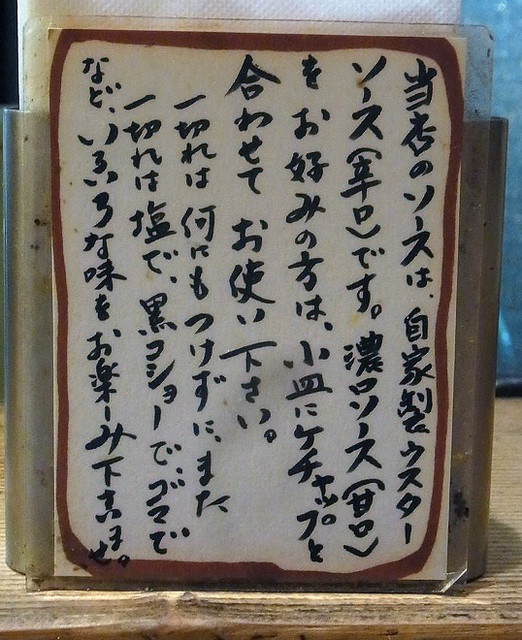 当店のソースは、自家製ウスター
ソース（辛口）です。濃口ソース（甘口）
をお好みの方は、小皿にケチャップと
合わせてお使い下さい。
一切れは何にもつけずに、また
一切れは塩で、黒コショーで、ゴマで
など、いろいろな味をお楽しみ下さいませ。